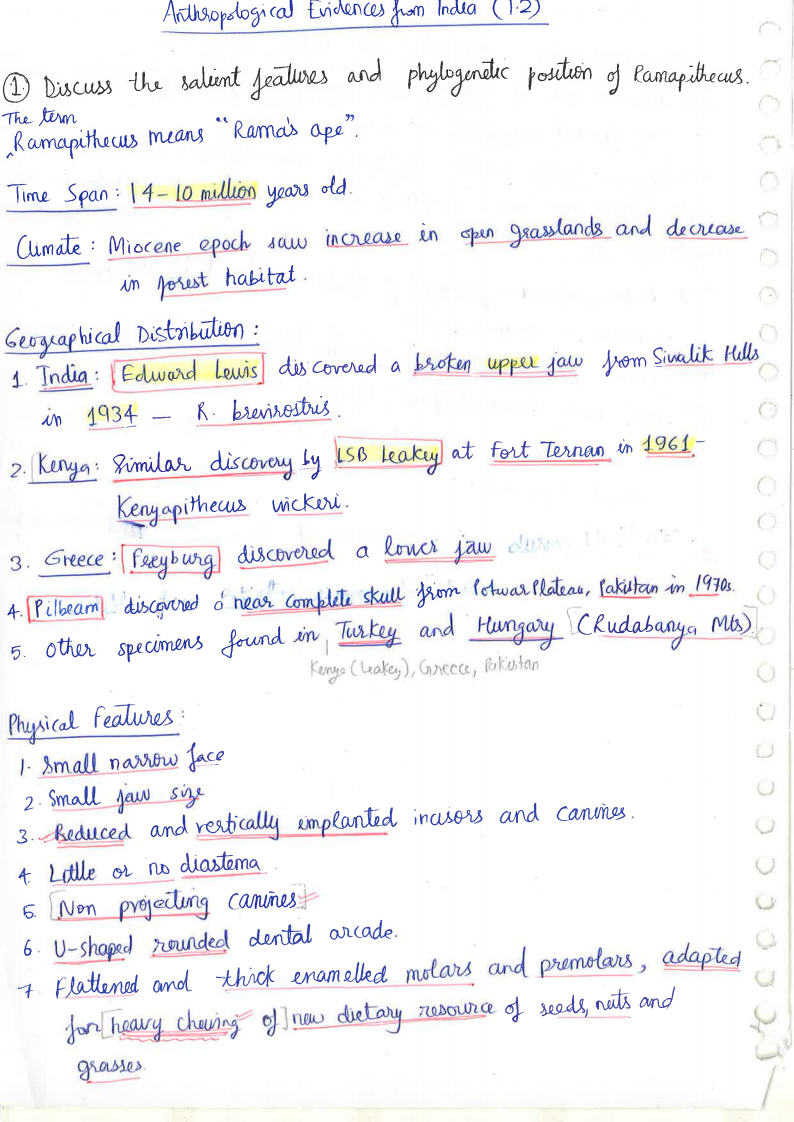 Anthropological Evidences from India (1.2)
① Discuss the salient features and phylogenetic position of Ramapithecus.
The term
Ramapithecus means "Rama's ape".
Time Span: 14-10 million years old.
Climate: Miocene epoch saw increase in open grasslands and decrease
in forest habitat.
Geographical Distribution:
1. India: Edward Lewis discovered a broken upper jaw from Sivalik Hills
in 1934 — R. brevirostris.
2. Kenya: Similar discovery by LSB Leakey at Fort Ternan in 1961-
Kenyapithecus wickeri.
3. Greece: Freyburg discovered a lower jaw
4. Pilbeam discovered a near complete skull from Potwar Plateau, Pakistan in 1970s.
5. Other specimens found in Turkey and Hungary (Rudabanya Mts).
Kenya (Leakey), Greece, Pakistan
Physical Features:
1. Small narrow face
2. Small jaw size
3. Reduced and vertically implanted incisors and canines.
4. Little or no diastema
5. [Non projecting canines]
6. U-shaped rounded dental arcade.
7. Flattened and thick enamelled molars and premolars, adapted
for [heavy chewing of] new dietary resource of seeds, nuts and
grasses.